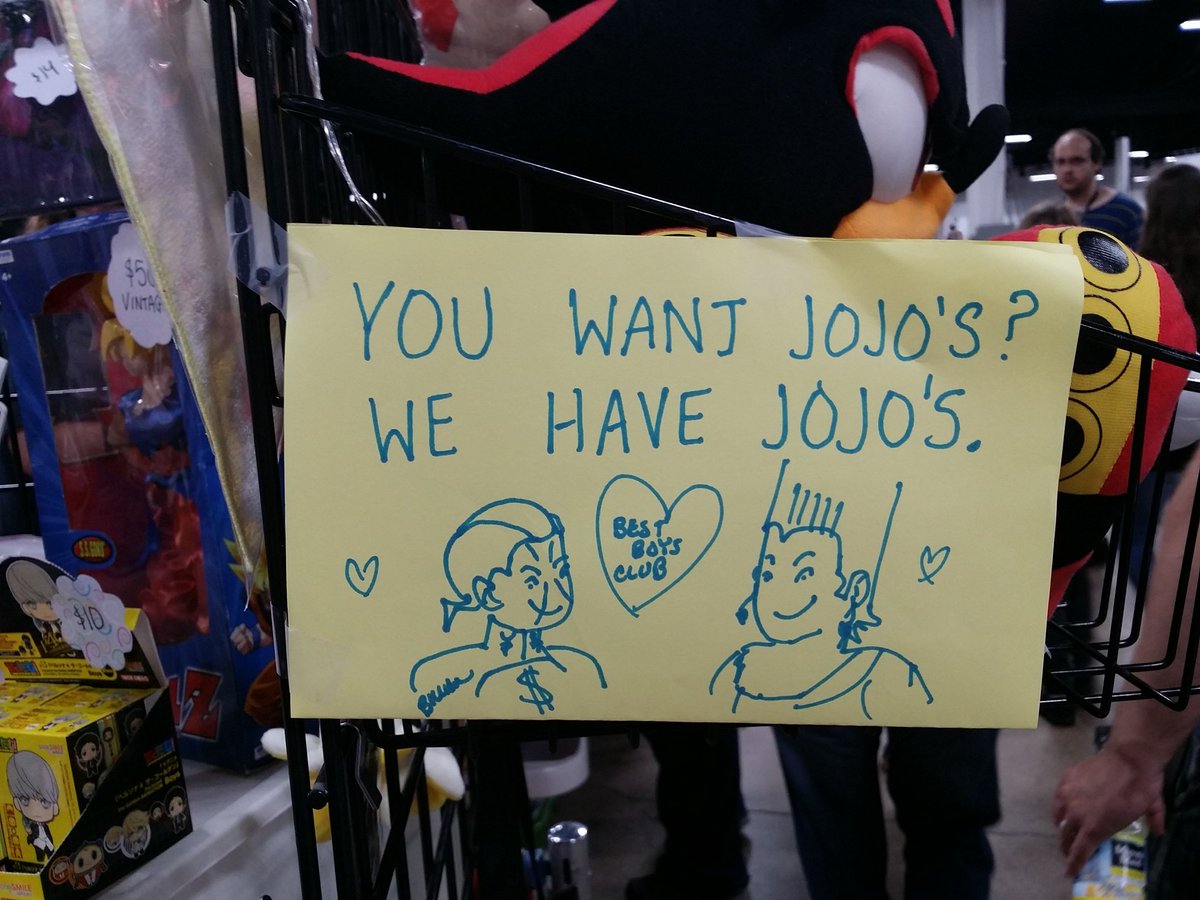 $14
$50
VINTAG
YOU WANT JOJO'S?
WE HAVE JOJO'S.
BEST
BOYS
CLUB
$
$10
Z